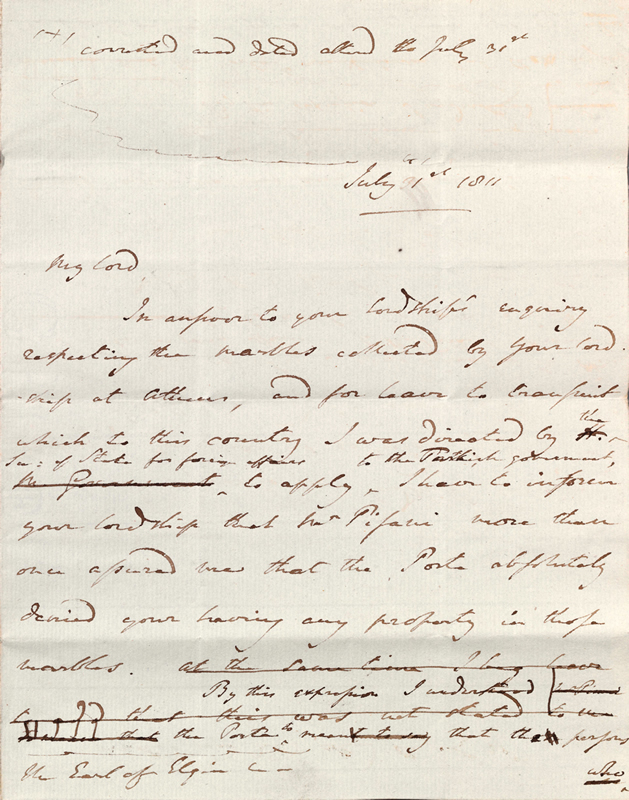 corrected and dated altered to July 31st
July 31st 1811
My Lord
In answer to your Lordship's enquiry
respecting the marbles collected by your Lord-
-ship at Athens, and for leave to transport
which to this country I was directed by the H.
Sec: of State for foreign affairs to the Turkish government,
Government to apply, I have to inform
your Lordship that Mr Pisani more than
once assured me that the Porte absolutely
denied your having any property in those
marbles. at the same time I beg leave
By this expression I understand
that this was not stated to me
that the Porte to meant to say that the persons
The Earl of Elgin
who